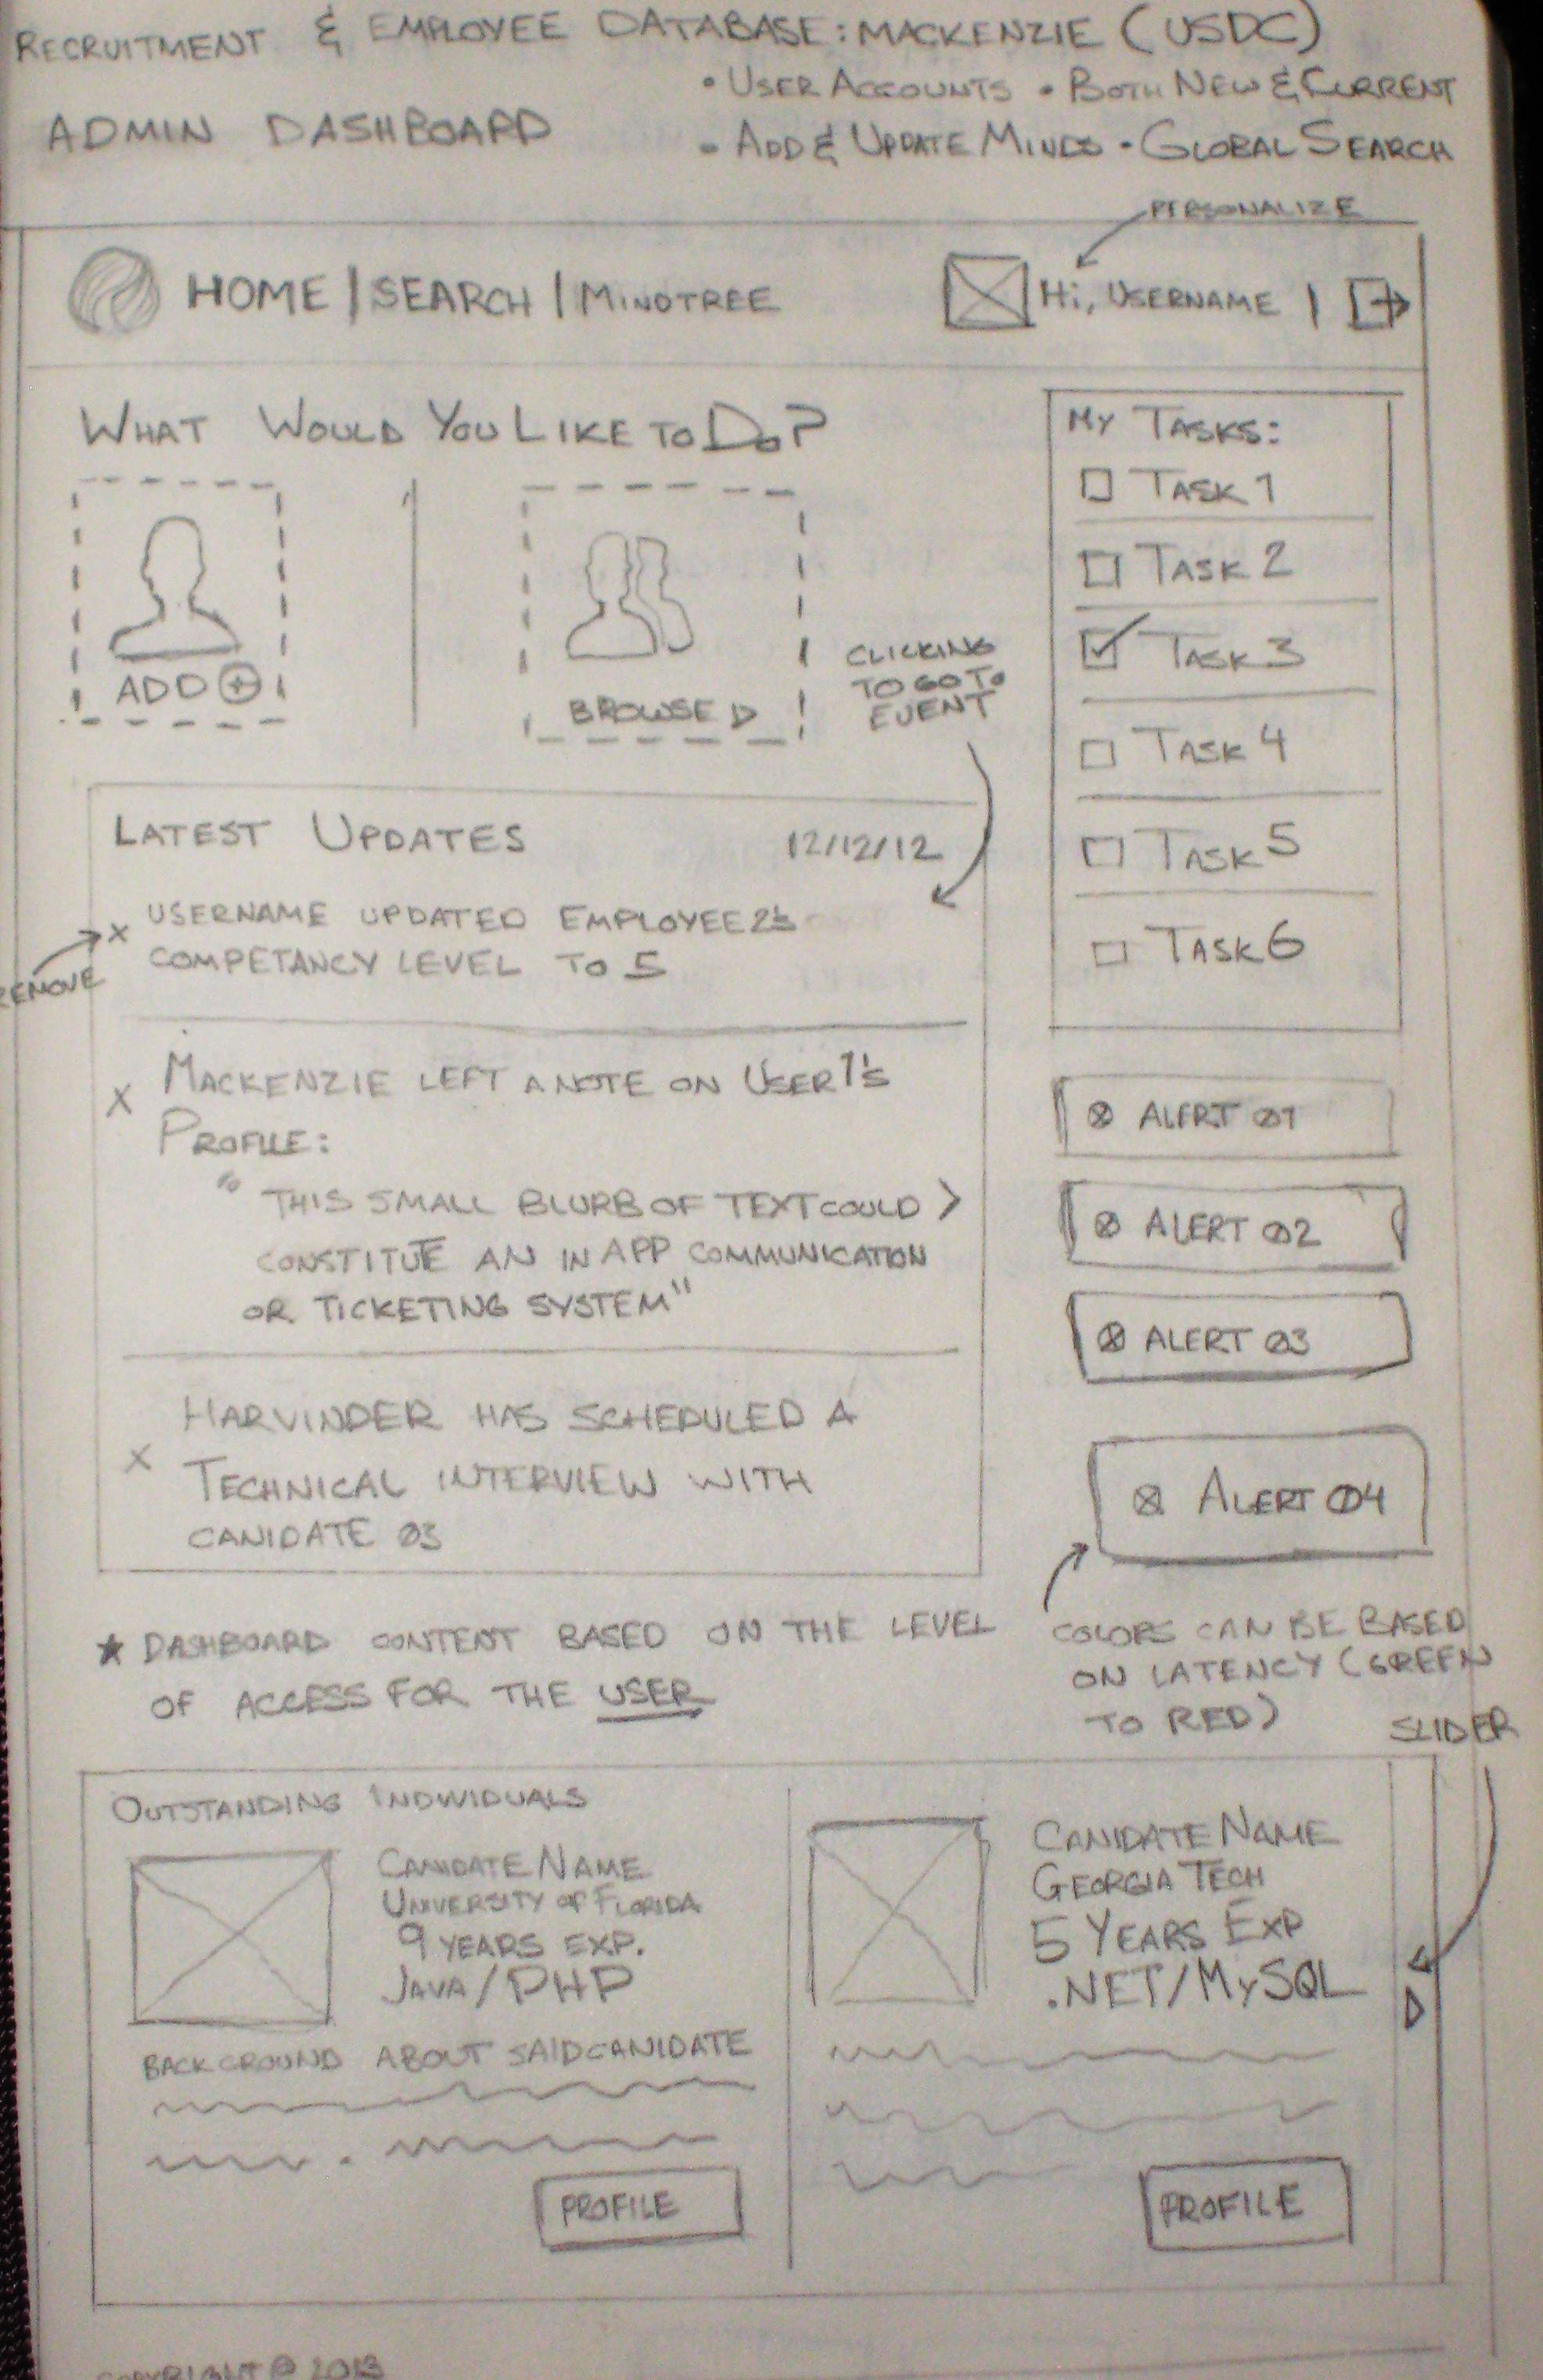 RECRUITMENT & EMPLOYEE DATABASE: MACKENZIE (USDC)
• USER ACCOUNTS • BOTH NEW & CURRENT
ADMIN DASHBOARD
• ADD & UPDATE MINDS • GLOBAL SEARCH
PERSONALIZE
HOME | SEARCH | MINDTREE
Hi, USERNAME |
WHAT WOULD YOU LIKE TO DO?
ADD
BROWSE
CLICKING
TO GO TO
EVENT
MY TASKS:
TASK 1
TASK 2
TASK 3
TASK 4
TASK 5
TASK 6
LATEST UPDATES 12/12/12
REMOVE
X USERNAME UPDATED EMPLOYEE 2's
COMPETANCY LEVEL TO 5
X MACKENZIE LEFT A NOTE ON USER 1's
PROFILE:
"THIS SMALL BLURB OF TEXT COULD >
CONSTITUTE AN IN APP COMMUNICATION
OR TICKETING SYSTEM"
X HARVINDER HAS SCHEDULED A
TECHNICAL INTERVIEW WITH
CANIDATE 03
ALERT 01
ALERT 02
ALERT 03
ALERT 04
★ DASHBOARD CONTENT BASED ON THE LEVEL
OF ACCESS FOR THE USER
COLORS CAN BE BASED
ON LATENCY (GREEN
TO RED)
SLIDER
OUTSTANDING INDIVIDUALS
CANIDATE NAME
UNIVERSITY OF FLORIDA
9 YEARS EXP.
JAVA/PHP
BACKGROUND ABOUT SAID CANIDATE
PROFILE
CANIDATE NAME
GEORGIA TECH
5 YEARS EXP
.NET/MySQL
PROFILE
COPYRIGHT © 2013